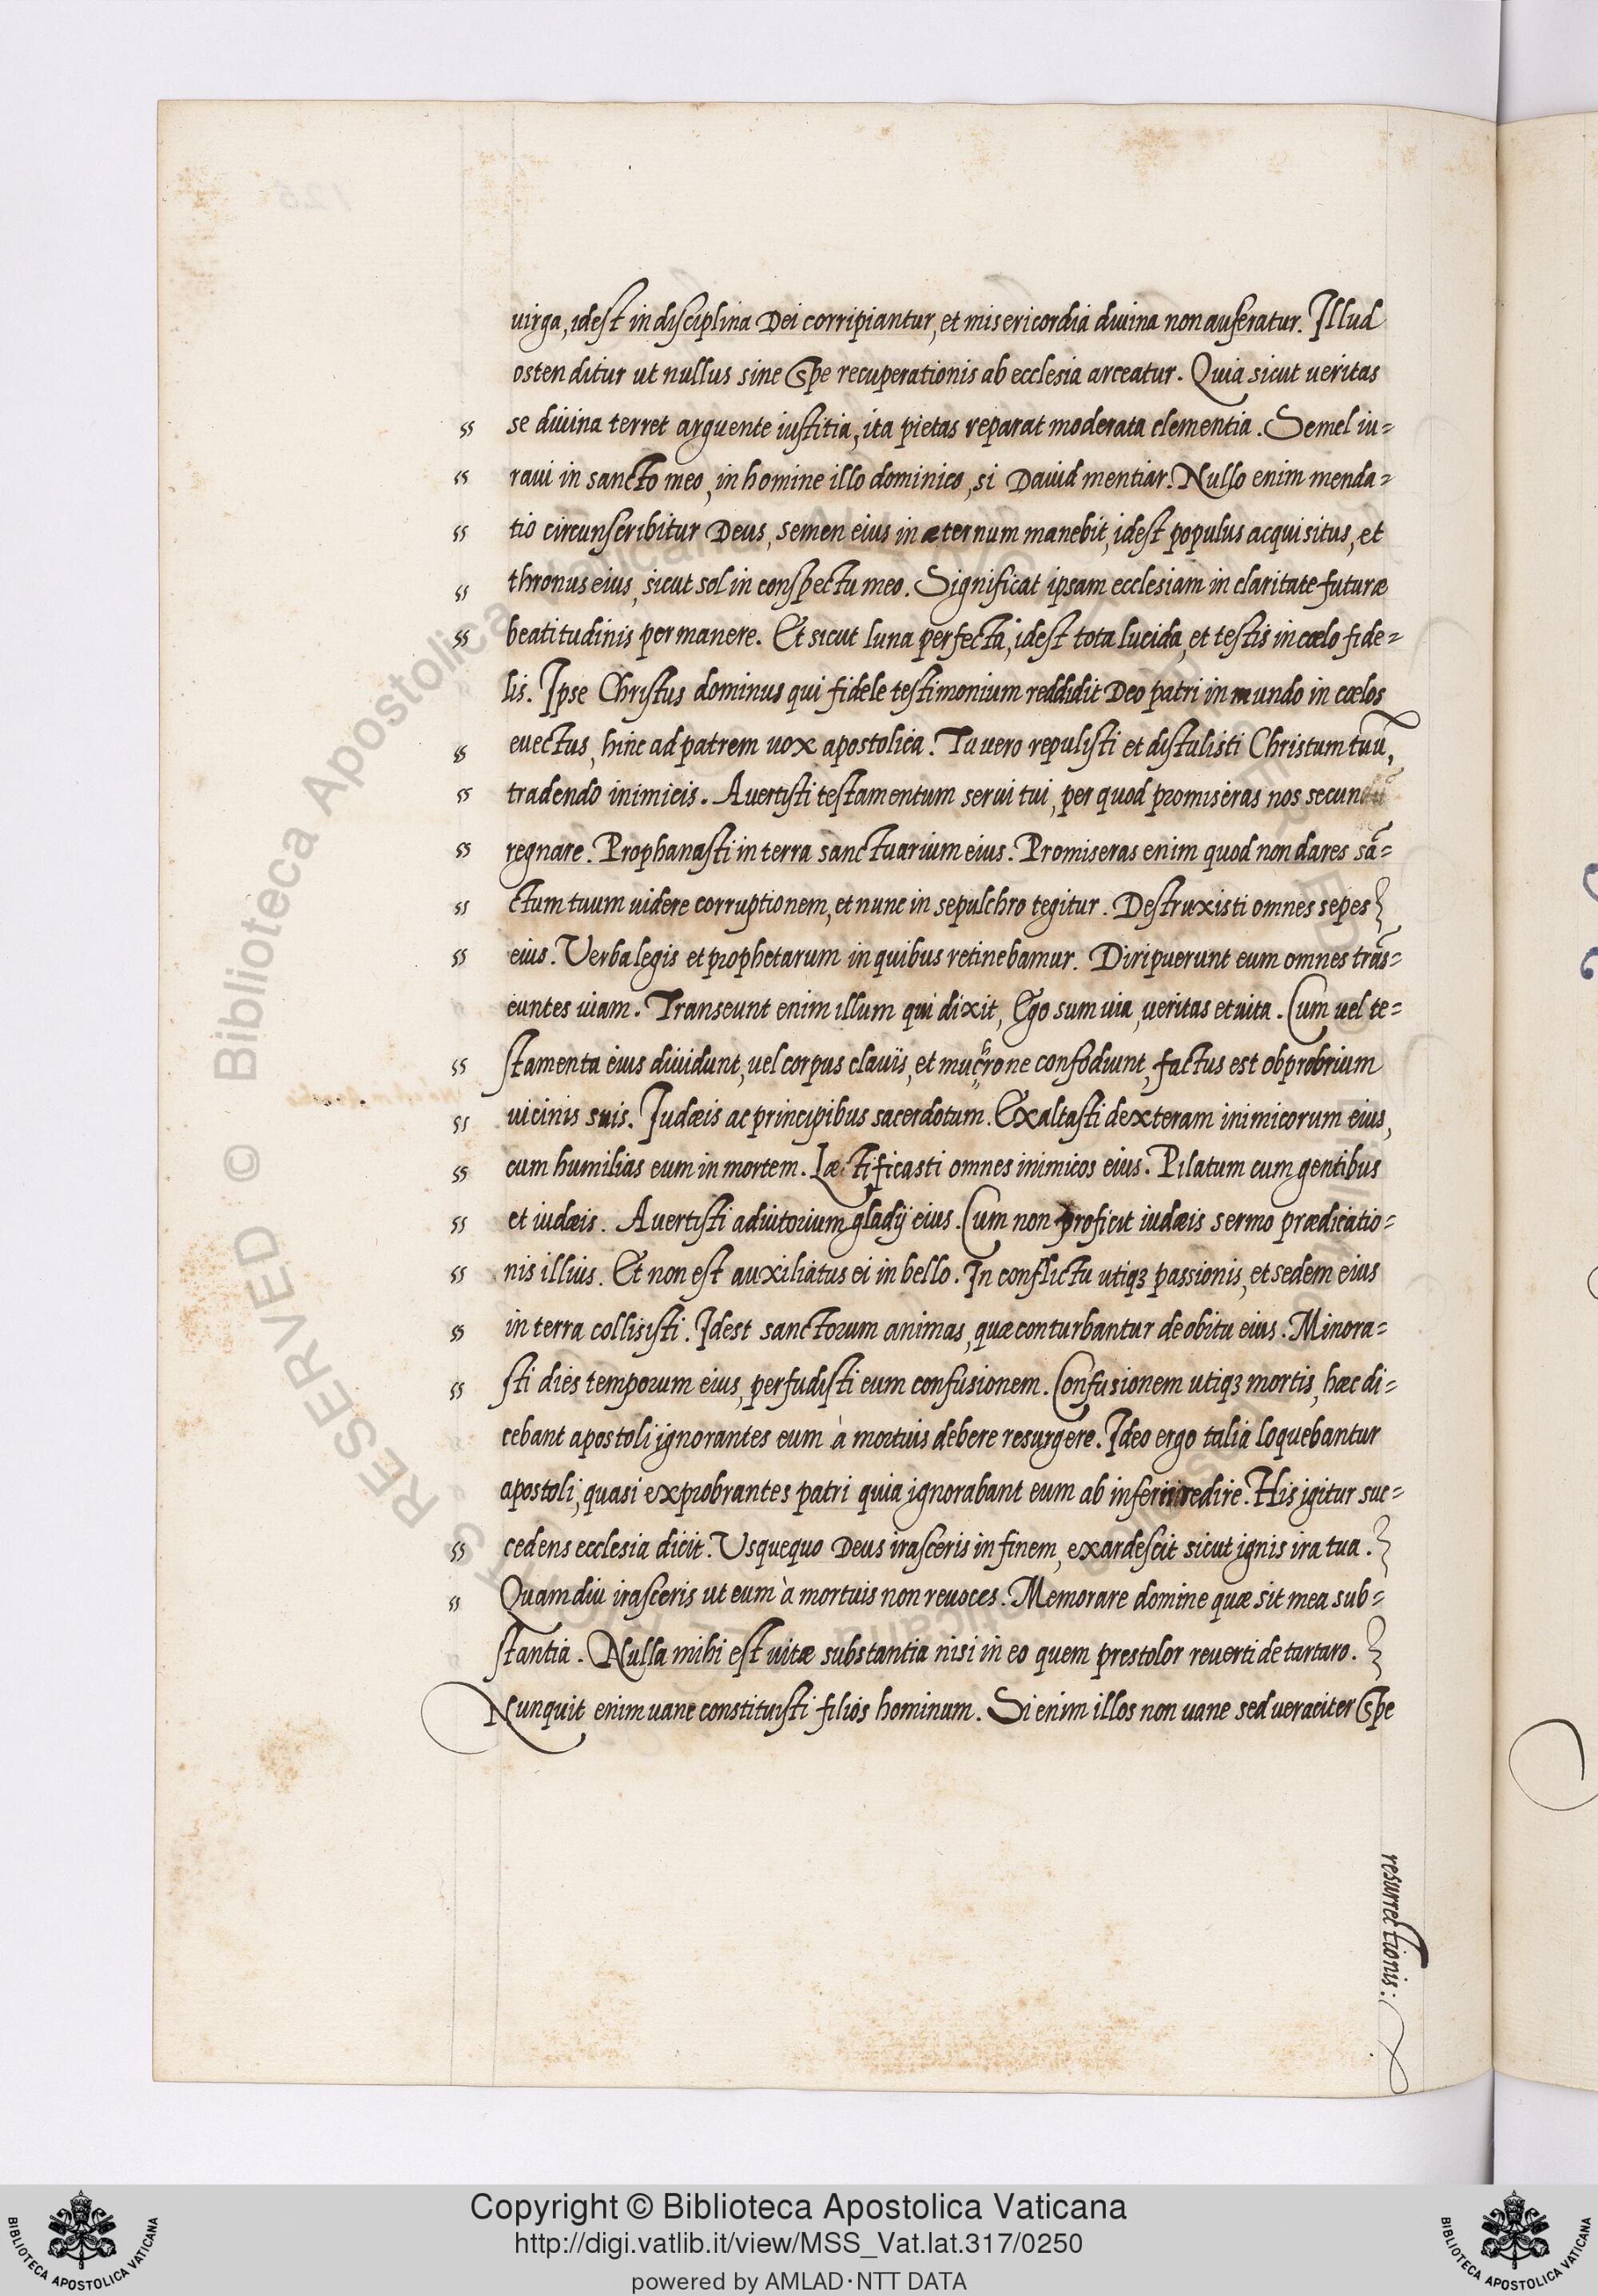 uirga, idest in disciplina Dei corripiantur, et misericordia diuina non auferatur. Illud
ostenditur ut nullus sine spe recuperationis ab ecclesia arceatur. Quia sicut ueritas
se diuina terret arguente iustitia, ita pietas reparat moderata clementia. Semel iu=
raui in sancto meo, in homine illo dominico, si Dauid mentiar. Nullo enim menda=
tio circunscribitur Deus, semen eius in æternum manebit, idest populus acquisitus, et
thronus eius, sicut sol in conspectu meo. Significat ipsam ecclesiam in claritate futuræ
beatitudinis permanere. Et sicut luna perfecta, idest tota lucida, et testis in cœlo fide=
lis. Ipse Christus dominus qui fidele testimonium reddidit Deo patri in mundo in cœlos
euectus, hinc ad patrem uox apostolica. Tu uero repulisti et distulisti Christum tuũ,
tradendo inimicis. Auertisti testamentum serui tui, per quod promiseras nos secundũ
regnare. Prophanasti in terra sanctuarium eius. Promiseras enim quod non dares sã=
ctum tuum uidere corruptionem, et nunc in sepulchro tegitur. Destruxisti omnes sepes
eius. Verba legis et prophetarum in quibus retinebamur. Diripuerunt eum omnes trãs=
euntes uiam. Transeunt enim illum qui dixit, Ego sum uia, ueritas et uita. Cum uel te=
stamenta eius diuidunt, uel corpus clauis, et muchrone confodiunt, factus est obprobrium
uicinis suis. Iudæis ac principibus sacerdotum. Exaltasti dexteram inimicorum eius,
cum humilias eum in mortem. Lætificasti omnes inimicos eius. Pilatum cum gentibus
et iudæis. Auertisti adiutorium gladij eius. Cum non proficit iudæis sermo prædicatio=
nis illius. Et non est auxiliatus ei in bello. In conflictu utiqꝫ passionis, et sedem eius
in terra collisisti. Idest sanctorum animas, quæ conturbantur de obitu eius. Minora=
sti dies temporum eius, perfudisti eum confusionem. Confusionem utiqꝫ mortis, hæc di=
cebant apostoli ignorantes eum à mortuis debere resurgere. Ideo ergo talia loquebantur
apostoli, quasi exprobrantes patri quia ignorabant eum ab inferis redire. His igitur suc=
cedens ecclesia dicit. Vsquequo Deus irasceris in finem, exardescit sicut ignis ira tua.
Quamdiu irasceris ut eum à mortuis non reuoces. Memorare domine quæ sit mea sub=
stantia. Nulla mihi est uitæ substantia nisi in eo quem prestolor reuerti de tartaro.
Nunquit enim uane constituisti filios hominum. Si enim illos non uane sed ueraciter spe
resurrectionis:
© Biblioteca Apostolica Vaticana ALL RIGHTS RESERVED
Copyright © Biblioteca Apostolica Vaticana
http://digi.vatlib.it/view/MSS_Vat.lat.317/0250
powered by AMLAD·NTT DATA
BIBLIOTECA APOSTOLICA VATICANA
BIBLIOTECA APOSTOLICA VATICANA